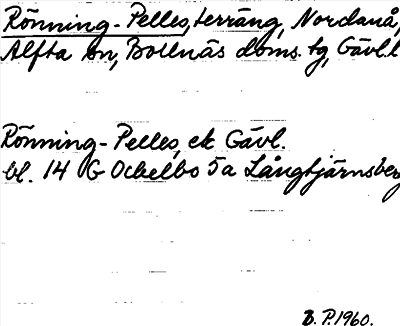 Rönning-Pelles, terräng, Nordanå,
Alfta sn, Bollnäs doms. tg, Gävl.l
Rönning-Pelles, ek Gävl.
bl. 14 G Ockelbo 5a Långtjärnsberg
B. P. 1960.